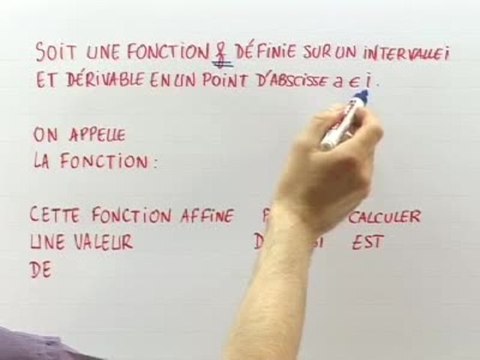 SOIT UNE FONCTION f DÉFINIE SUR UN INTERVALLE i
ET DÉRIVABLE EN UN POINT D'ABSCISSE a ∈ i.
ON APPELLE
LA FONCTION :
CETTE FONCTION AFFINE CALCULER
UNE VALEUR EST
DE